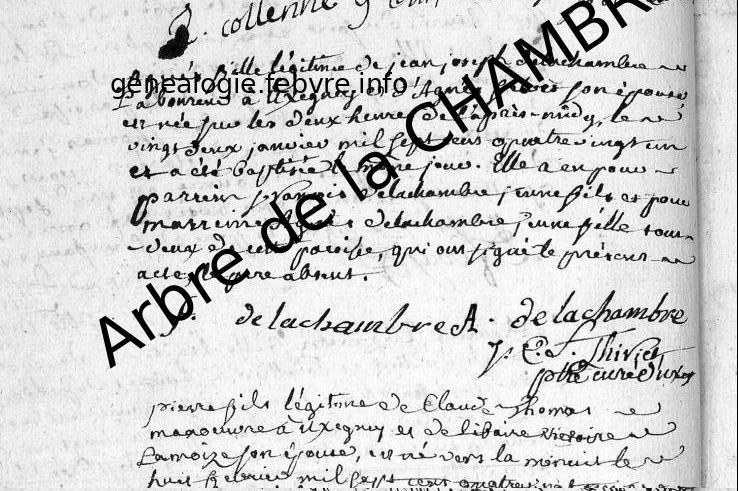 collenne
fille légitime de jean joseph delachambre
genealogie.febvre.info
Laboureur a Uxegney et d'Agnes son épouse
est née sur les deux heures de l'après-midy, le
vingt deux janvier mil sept cens quatre vingt un
et a été baptisée le même jour. Elle a eu pour
parrein françois delachambre jeune fils et pour
marreine delachambre, jeune fille tous
deux de cette paroisse, qui ont signé le présent
acte, le pere absent.
Arbre de la CHAMBRE
delachambre A. delachambre
p. C. J. Thiriet
ptre curé d'uxey
pierre fils légitime de Claude thomas
manoeuvre a Uxegney et de libaire victoire
Lamoize son épouse, est né vers la minuit le
huit fevrier mil sept cent quatre